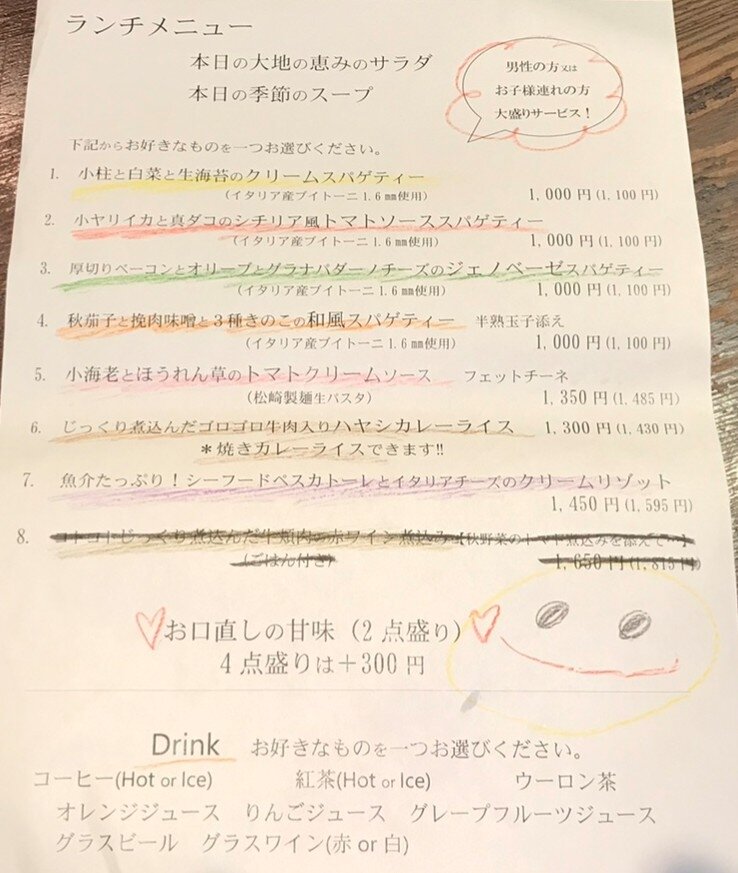 ランチメニュー
本日の大地の恵みのサラダ
本日の季節のスープ
男性の方又は
お子様連れの方
大盛りサービス！
下記からお好きなものを一つお選びください。
1. 小柱と白菜と生海苔のクリームスパゲティー
(イタリア産ブイトーニ1.6㎜使用) 1,000円(1,100円)
2. 小ヤリイカと真ダコのシチリア風トマトソーススパゲティー
(イタリア産ブイトーニ1.6㎜使用) 1,000円(1,100円)
3. 厚切りベーコンとオリーブとグラナパダーノチーズのジェノベーゼスパゲティー
(イタリア産ブイトーニ1.6㎜使用) 1,000円(1,100円)
4. 秋茄子と挽肉味噌と3種きのこの和風スパゲティー 半熟玉子添え
(イタリア産ブイトーニ1.6㎜使用) 1,000円(1,100円)
5. 小海老とほうれん草のトマトクリームソース フェットチーネ
(松崎製麺生パスタ) 1,350円(1,485円)
6. じっくり煮込んだゴロゴロ牛肉入りハヤシカレーライス 1,300円(1,430円)
＊焼きカレーライスできます!!
7. 魚介たっぷり！シーフードペスカトーレとイタリアチーズのクリームリゾット
1,450円(1,595円)
8. コトコトじっくり煮込んだ牛頬肉の赤ワイン煮込み【秋野菜のトマト煮込みを添えて】
(ごはん付き) 1,650円(1,815円)
お口直しの甘味（2点盛り）
4点盛りは＋300円
Drink お好きなものを一つお選びください。
コーヒー(Hot or Ice) 紅茶(Hot or Ice) ウーロン茶
オレンジジュース りんごジュース グレープフルーツジュース
グラスビール グラスワイン(赤 or 白)